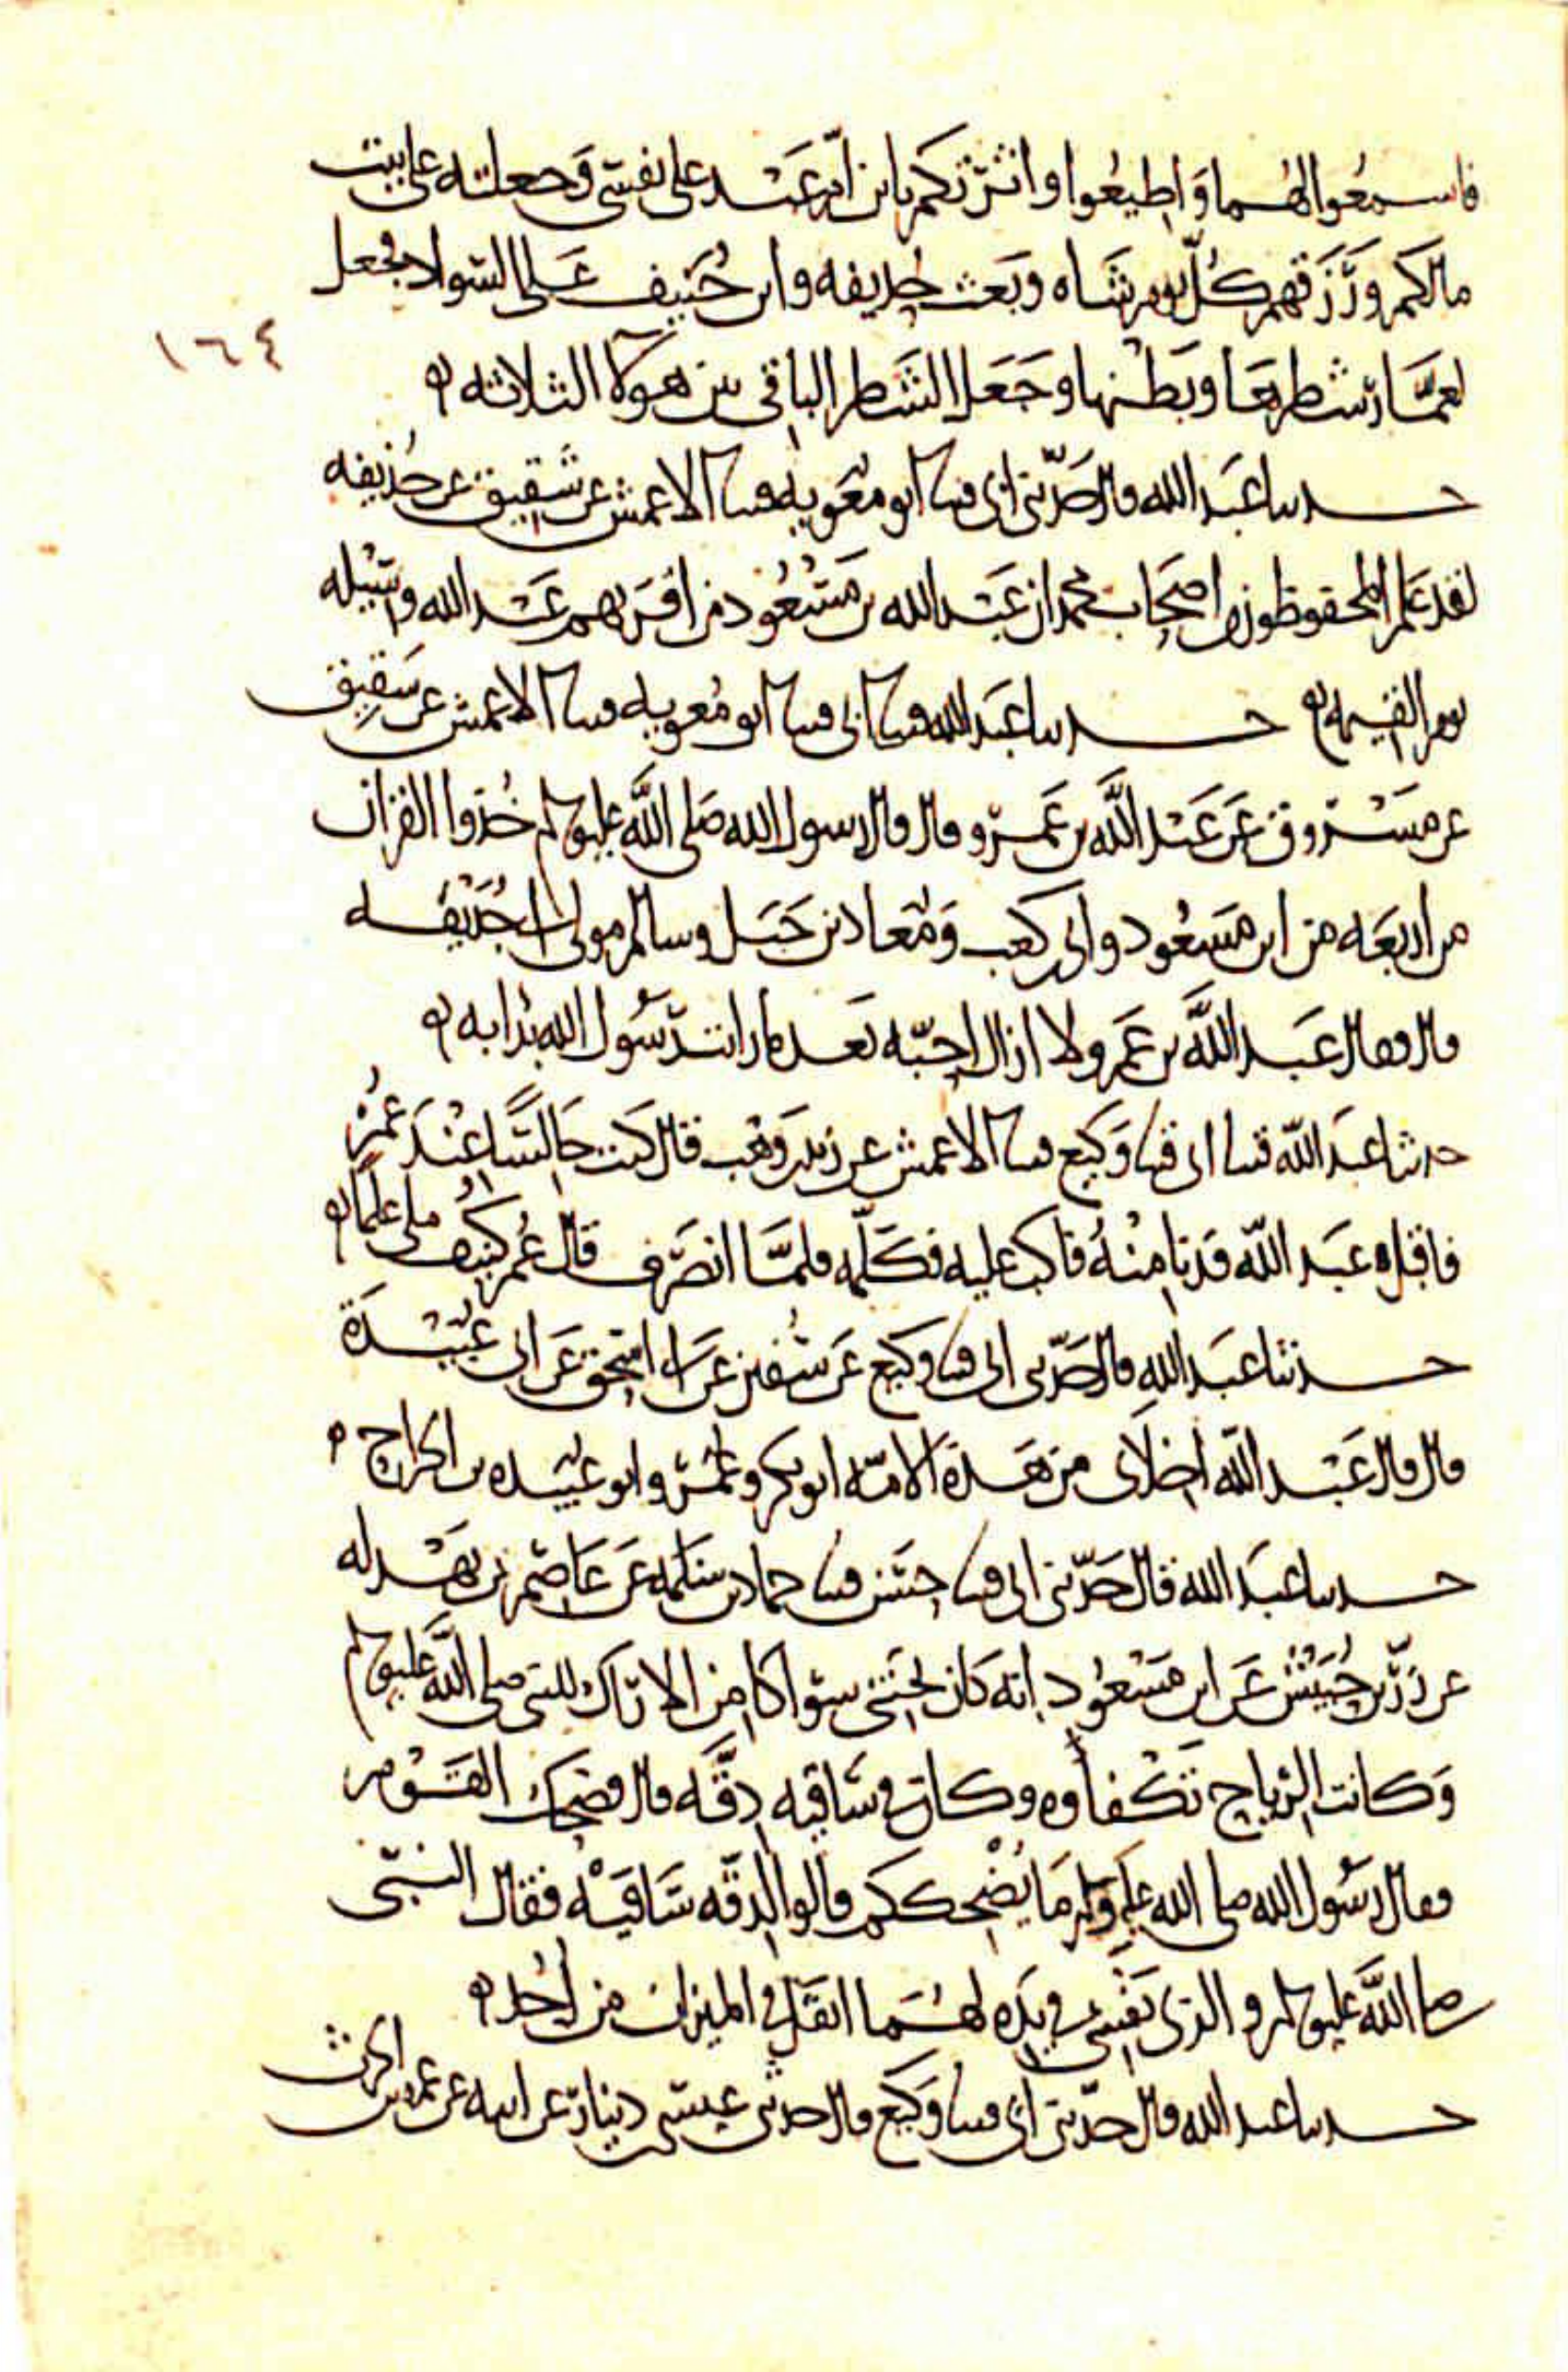 فاسمعوا لهما وَاطيعُوا واثرتكم بابن ام عَبْد على نفسي وَجعلته على بيت
مالكم وَرَزَقهم كُلّ يوم شَاه وبَعث حُذيفه وابن حُنيف عَلى السّواد فجعل
١٦٤
لعمَّار شطرهَا وبَطنها وجَعَل الشَطر الباقي بين هولا الثلاثه ه
حدثنا عَبْد الله قال حَدّثني ابي قثنا ابو معَويه قثنا الاعمش عن شَقِيق عن حُذيفه
لقد عَلم المحفوظون من اصحَاب محمد ان عَبْد الله بن مَسْعُود من اقرَبهم عَند الله وسيْله
يوم القيمه ه حدثنا عَبْد الله قثنا ابي قثنا ابو مُعويه قثنا الاعمش عن شَقِيق
عن مَسْروق عَن عَبْد اللَّه بن عَمرو قال قال رسول الله صَلى اللَّه عليه وسلم خُذوا القران
من اربعَه من ابن مَسعُود وابي بن كعب وَمُعاذ بن جَبَل وسالم مولى ابي حُذَيْفه
قال فقال عَبْد اللَّه بن عَمرو لا ازال احِبّه بَعد ما رايت رسُول الله بدا به ه
حدثنا عبَد اللّه قثنا ابي قثنا وَكيع قثنا الاعمش عن زيد بن وَهْب قال كنت جَالسًا عِنْدَ عُمَر
فاقبل عبَد اللّه فدنا مِنْهُ فاكب عليه فكلّمه فلمَّا انصَرف قال عُمر كُنيف ملي علما ه
حدثنا عَبَد اللهِ قال حَدّثني ابي قثنا وكيع عَن سُفين عَن ابي اسحق عَن ابي عُبيْدَة
قال قال عَبْد اللّه اخِلاي من هَذه الامّه ابو بكر وعُمَر وابو عُبَيده بن الجراح ه
حدثنا عبَد الله قال حَدّثني ابي قثنا حسَن قثنا حماد بن سَلمه عَن عَاصِم بن بَهْدله
عن زِرّ بن حُبَيْش عَن ابن مَسْعُود انه كان يجتني سواكا من الاراك للنبي صلى اللَّه عليه وسلم
وَكانت الرياح تَكْفاوه وكان في سَاقيه دِقَّه قال فضحك القَوْم
فقال رسُول الله صلى الله عليه وسلم مَا يُضْحككم قالوا لدقّه سَاقيْه فقال النبي
صلى اللَّه عليه وسلم والذي نفْسي بيَدِه لهُمَا اثقَل في الميزان من اُحد ه
حدثنا عبد الله قال حدّثني ابي قثنا وَكيع قال حدثني عيسى بن دينار عن ابيه عن عمرو بن الحرث